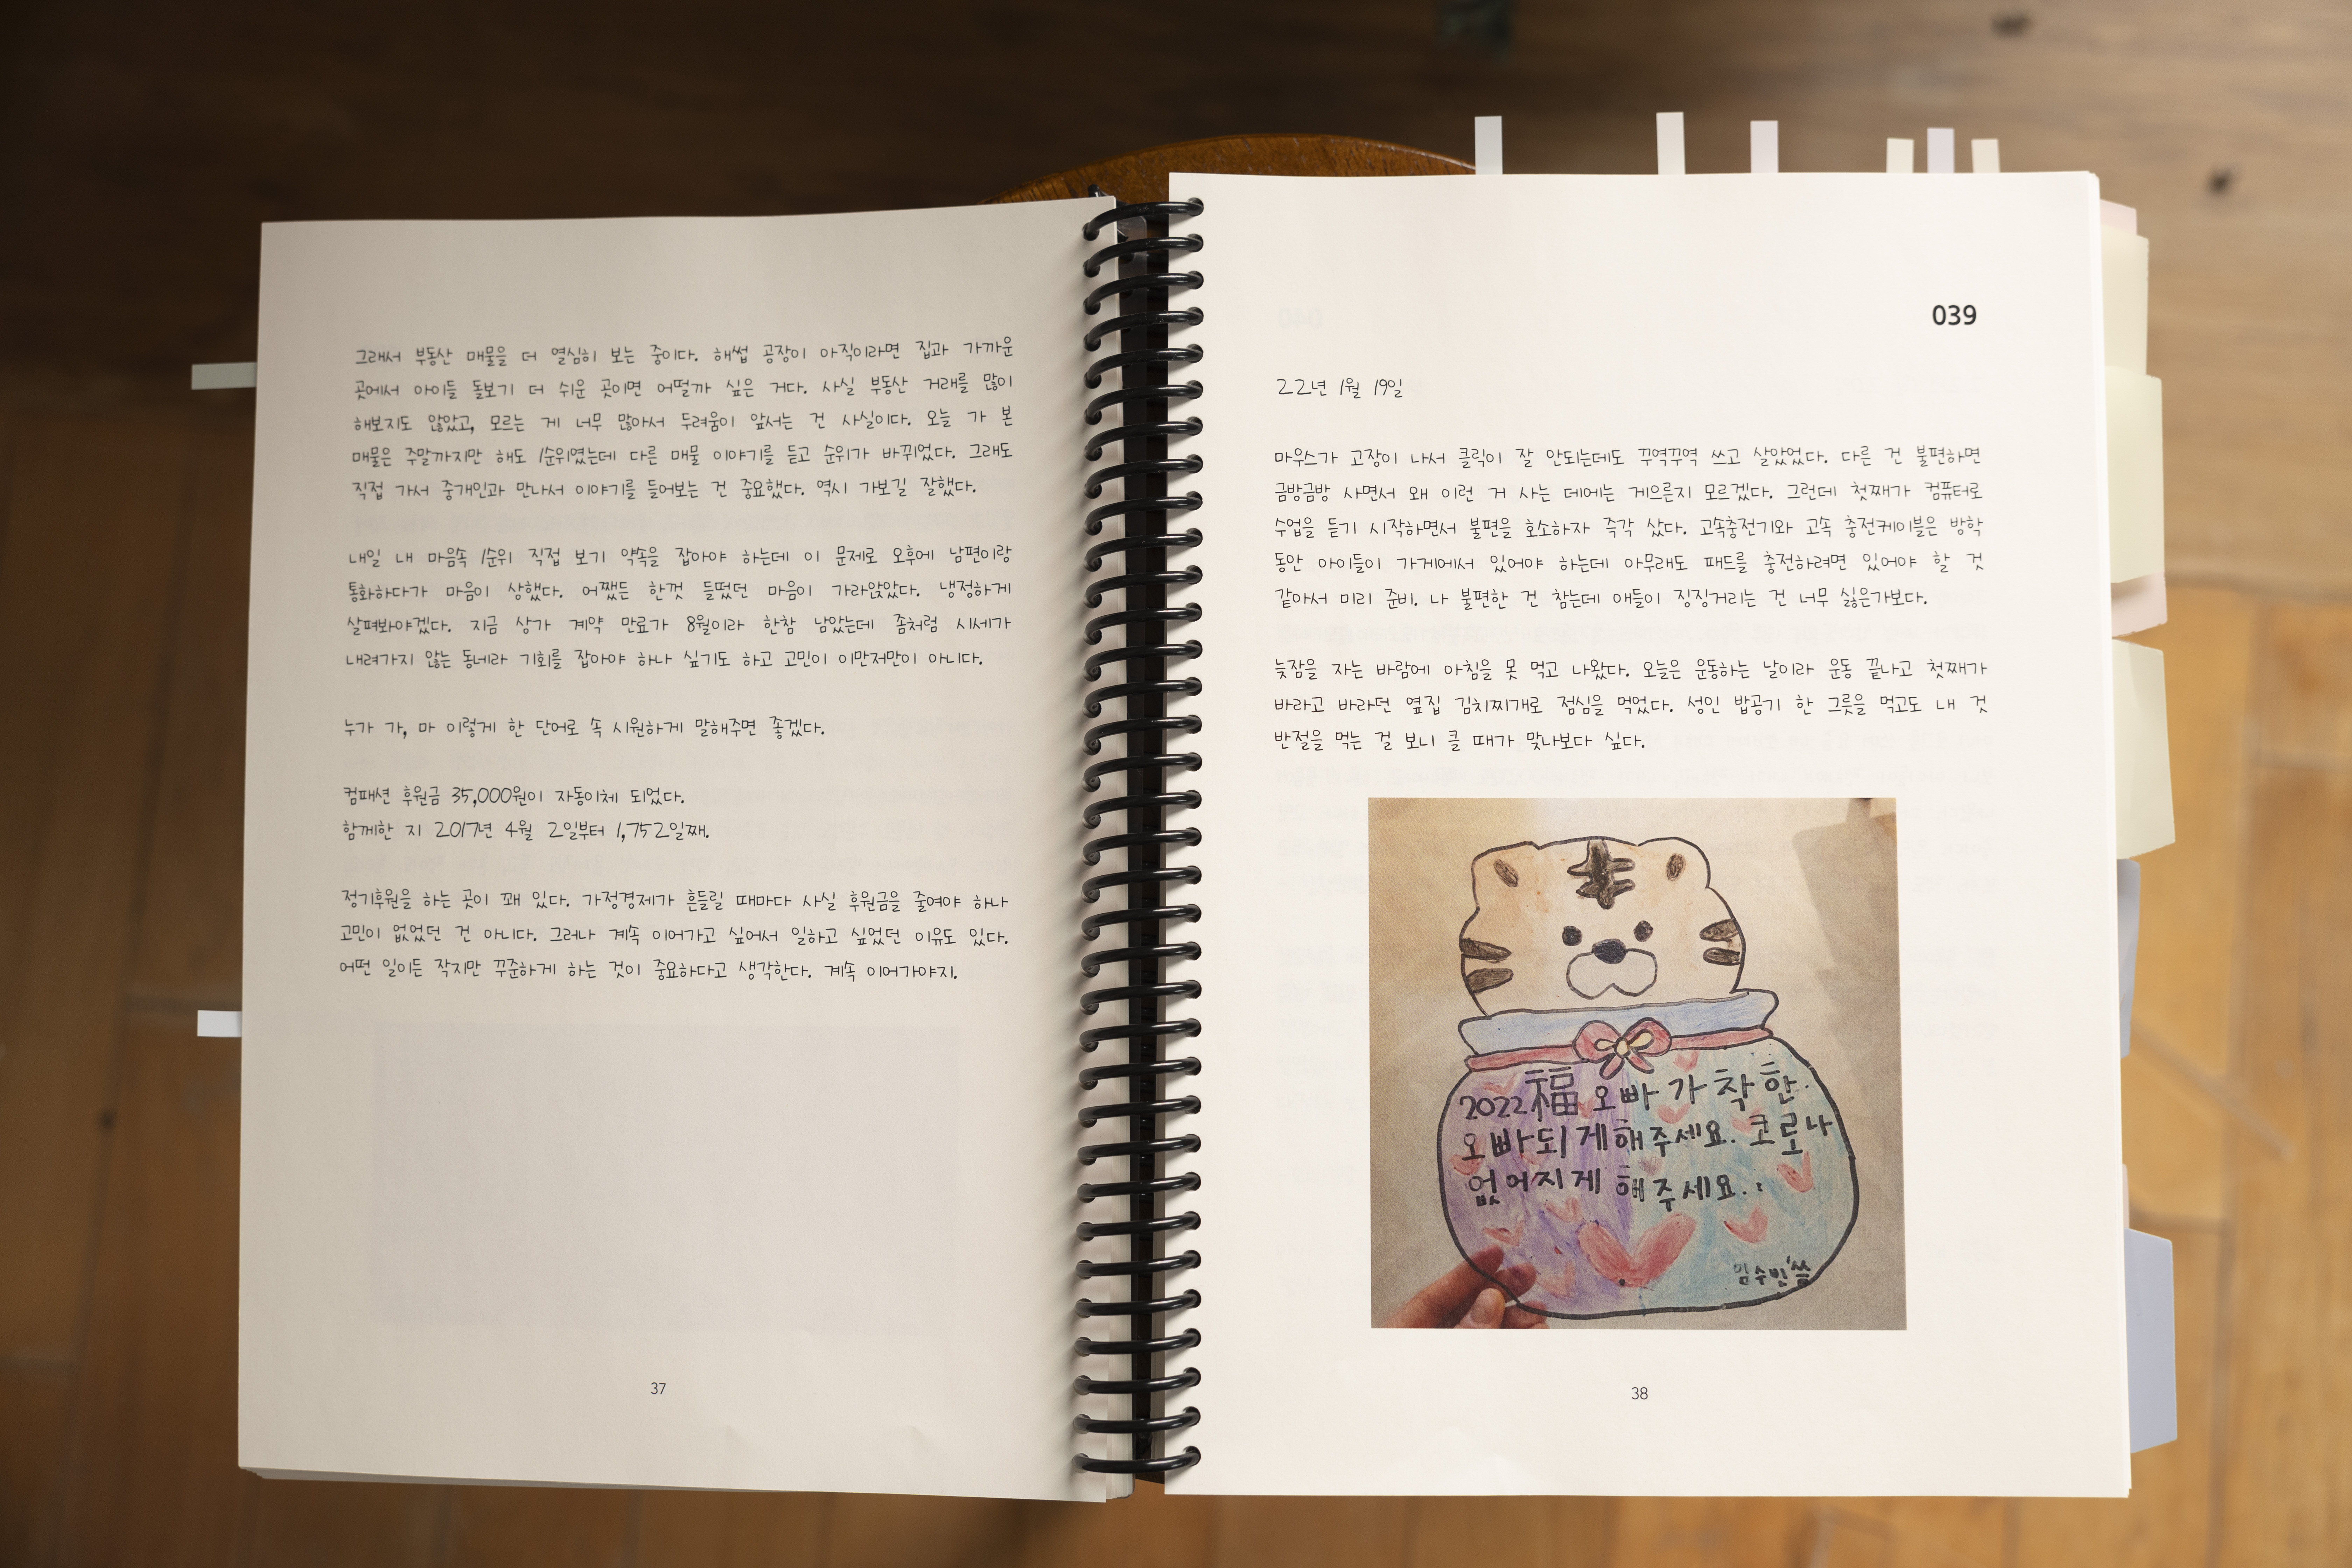 그래서 부동산 매물을 더 열심히 보는 중이다. 해썹 공장이 아직이라면 집과 가까운
곳에서 아이들 돌보기 더 쉬운 곳이면 어떨까 싶은 거다. 사실 부동산 거래를 많이
해보지도 않았고, 모르는 게 너무 많아서 두려움이 앞서는 건 사실이다. 오늘 가 본
매물은 주말까지만 해도 1순위였는데 다른 매물 이야기를 듣고 순위가 바뀌었다. 그래도
직접 가서 중개인과 만나서 이야기를 들어보는 건 중요했다. 역시 가보길 잘했다.
내일 내 마음속 1순위 직접 보기 약속을 잡아야 하는데 이 문제로 오후에 남편이랑
통화하다가 마음이 상했다. 어쨌든 한껏 들떴던 마음이 가라앉았다. 냉정하게
살펴봐야겠다. 지금 상가 계약 만료가 8월이라 한참 남았는데 좀처럼 시세가
내려가지 않는 동네라 기회를 잡아야 하나 싶기도 하고 고민이 이만저만이 아니다.
누가 가, 마 이렇게 한 단어로 속 시원하게 말해주면 좋겠다.
컴패션 후원금 35,000원이 자동이체 되었다.
함께한 지 2017년 4월 2일부터 1,752일째.
정기후원을 하는 곳이 꽤 있다. 가정경제가 흔들릴 때마다 사실 후원금을 줄여야 하나
고민이 없었던 건 아니다. 그러나 계속 이어가고 싶어서 일하고 싶었던 이유도 있다.
어떤 일이든 작지만 꾸준하게 하는 것이 중요하다고 생각한다. 계속 이어가야지.
37
039
22년 1월 19일
마우스가 고장이 나서 클릭이 잘 안되는데도 꾸역꾸역 쓰고 살았었다. 다른 건 불편하면
금방금방 사면서 왜 이런 거 사는 데에는 게으른지 모르겠다. 그런데 첫째가 컴퓨터로
수업을 듣기 시작하면서 불편을 호소하자 즉각 샀다. 고속충전기와 고속 충전케이블은 방학
동안 아이들이 가게에서 있어야 하는데 아무래도 패드를 충전하려면 있어야 할 것
같아서 미리 준비. 나 불편한 건 참는데 애들이 징징거리는 건 너무 싫은가보다.
늦잠을 자는 바람에 아침을 못 먹고 나왔다. 오늘은 운동하는 날이라 운동 끝나고 첫째가
바라고 바라던 옆집 김치찌개로 점심을 먹었다. 성인 밥공기 한 그릇을 먹고도 내 것
반절을 먹는 걸 보니 클 때가 맞나보다 싶다.
2022福 오빠가 착한
오빠되게해주세요. 코로나
없어지게 해주세요.
임수빈 씀
38